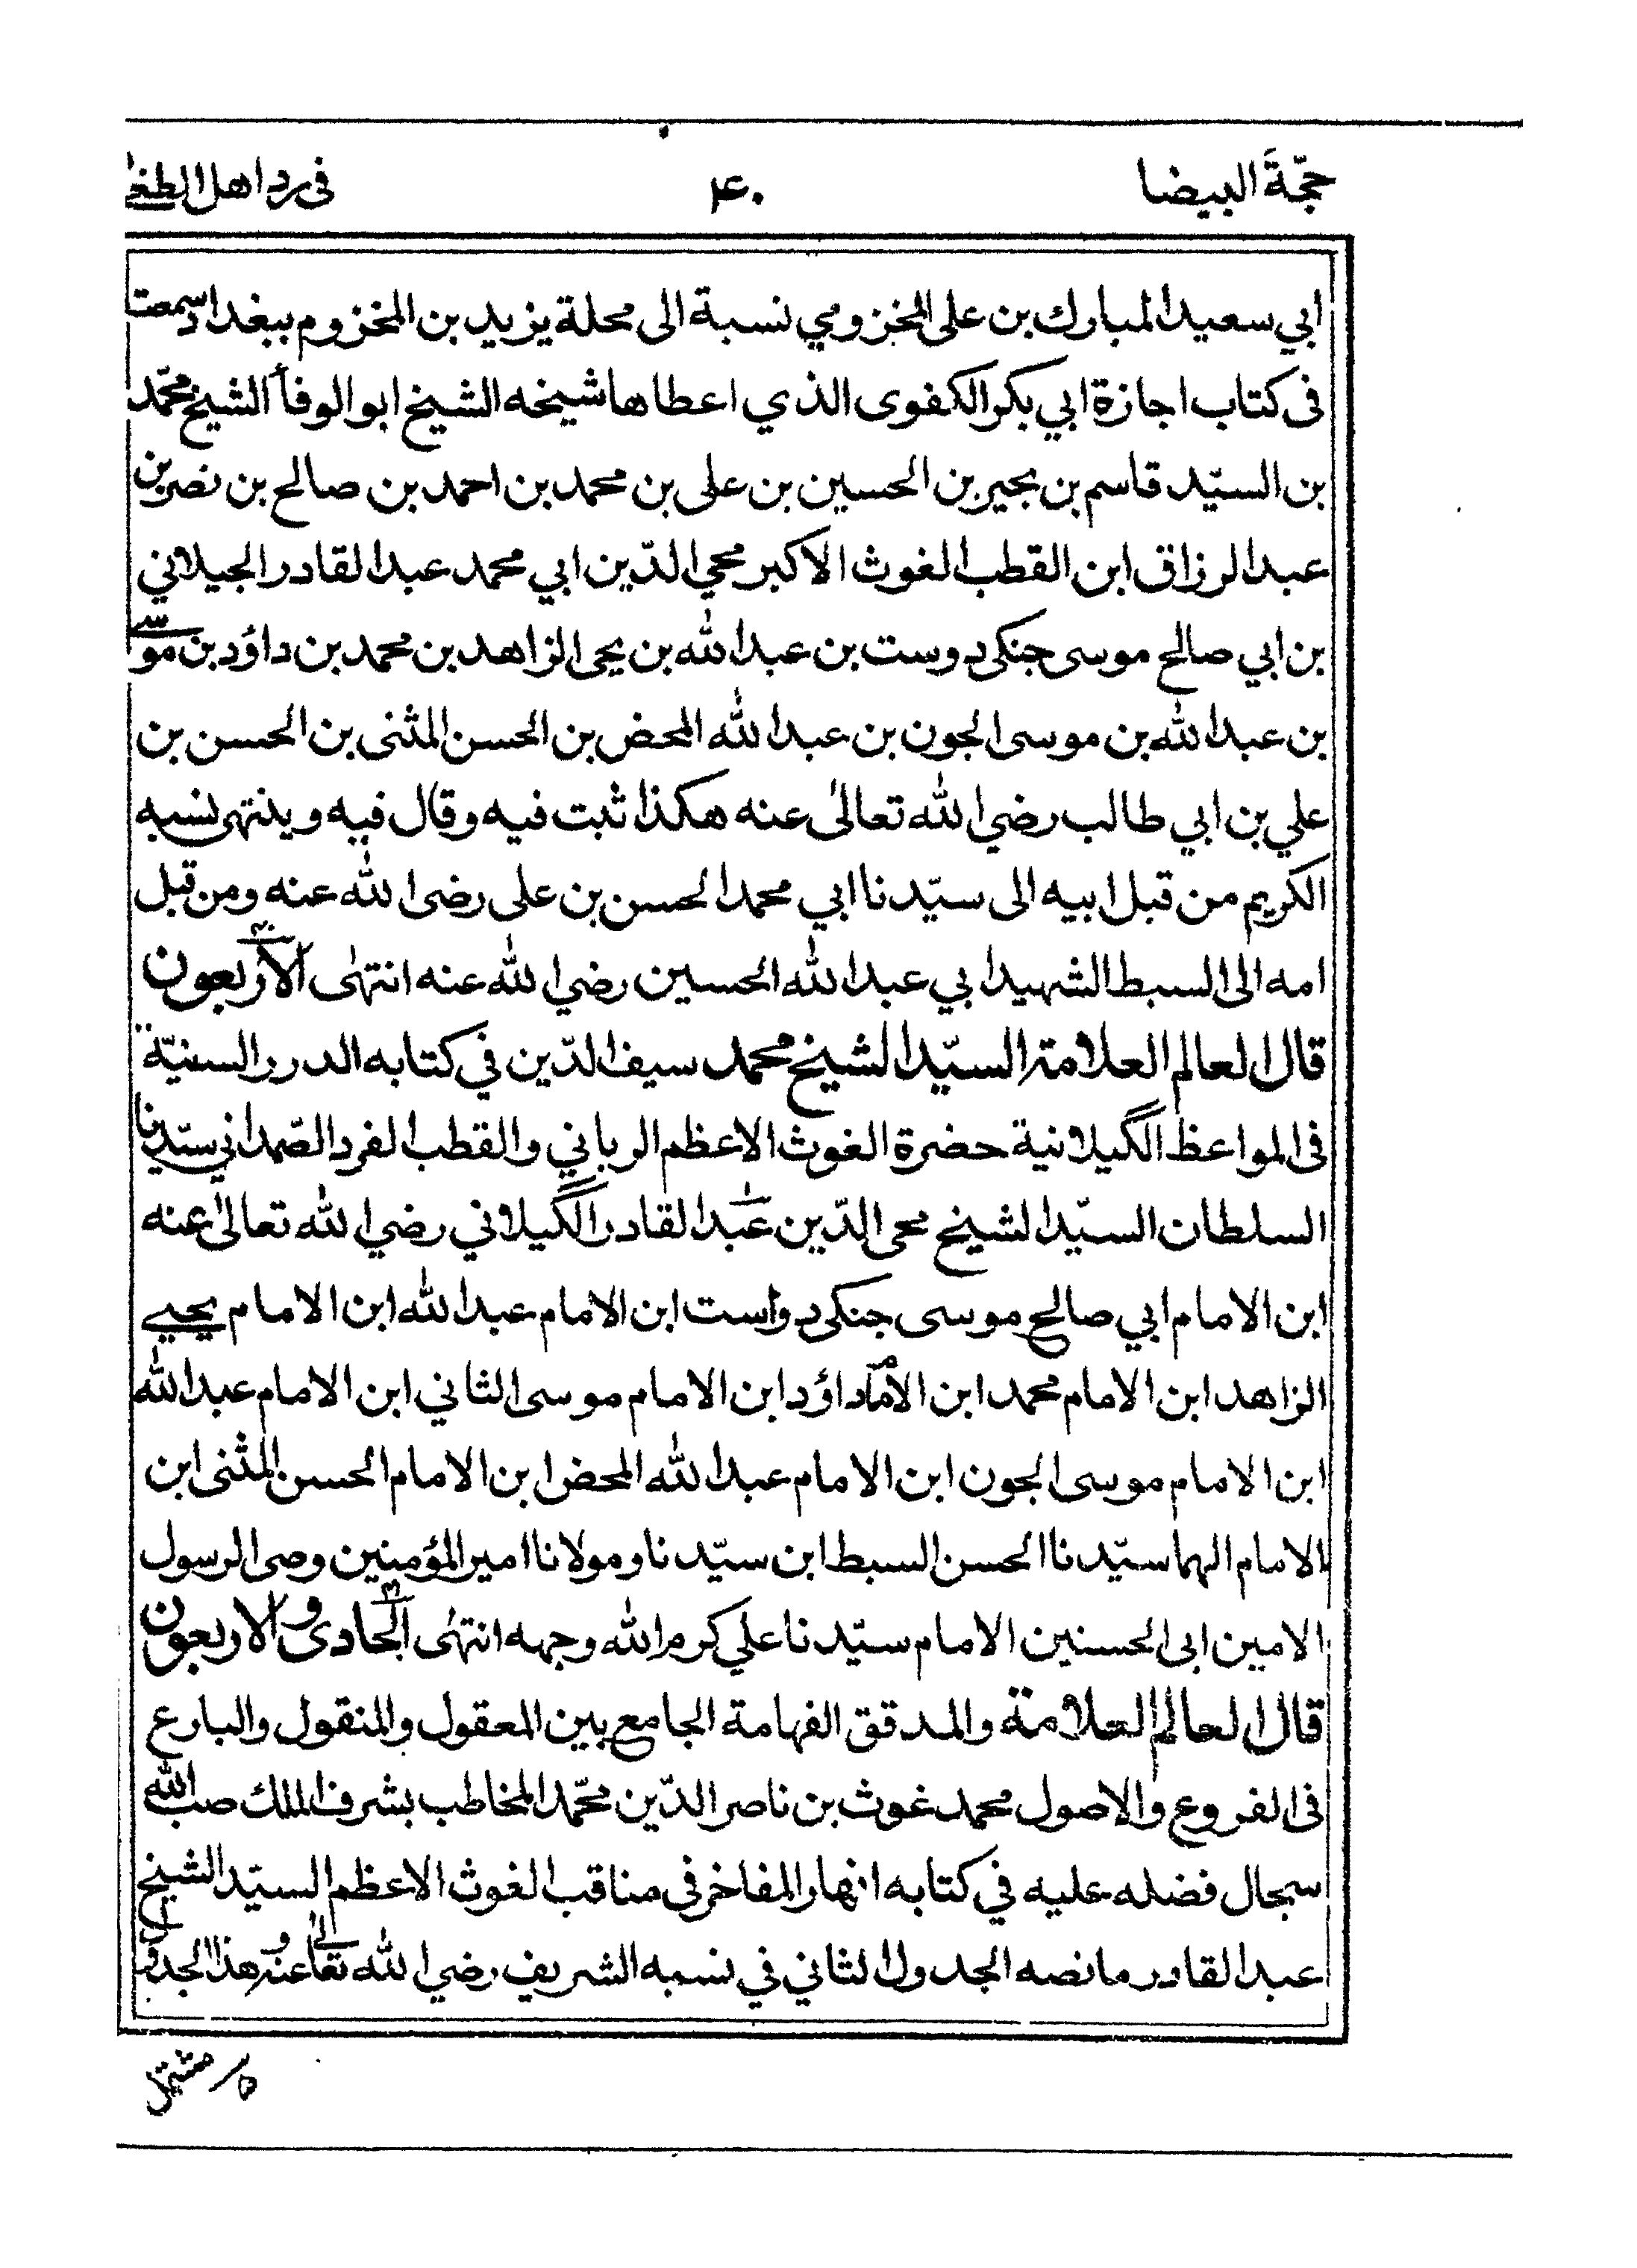 حجّةَ البيضا ۴۰ فی رد اهل الطغٰ
ابي سعيد المبارك بن علی المخزومي نسبة الی محلة يزيد بن المخزوم ببغداد سمعت
فی كتاب اجازة ابي بكر الكفوی الذي اعطاها شيخه الشيخ ابو الوفأ الشيخ محمّد
بن السيّد قاسم بن يحيی بن الحسين بن علی بن محمد بن احمد بن صالح بن نصر بن
عبد الرزاق ابن القطب الغوث الاكبر محي الدّين ابي محمد عبد القادر الجيلاني
بن ابي صالح موسی جنكی دوست بن عبد الله بن يحی الزاهد بن محمد بن داؤد بن موسے
بن عبد الله بن موسی الجون بن عبد الله المحض بن الحسن المثنی بن الحسن بن
علي بن ابي طالب رضي الله تعالیٰ عنه هكذا ثبت فيه وقال فيه وينتهی نسبه
الكريم من قبل ابيه الی سيّدنا ابي محمد الحسن بن علی رضی الله عنه ومن قبل
امه الی السبط الشهيد ابي عبد الله الحسين رضي الله عنه انتهٰی الاربعون
قال العالم العلامة السيّد الشيخ محمد سيف الدّين في كتابه الدرر السنيّة
فی المواعظ الگيلانية حضرة الغوث الاعظم الرباني والقطب الفرد الصّمداني سيّدنا
السلطان السيّد الشيخ محی الدّين عبد القادر الگيلاني رضي الله تعالیٰ عنه
ابن الامام ابي صالح موسی جنكی دوست ابن الامام عبد الله ابن الامام يحيے
الزاهد ابن الامام محمد ابن الامام داؤد ابن الامام موسی الثاني ابن الامام عبد الله
ابن الامام موسی الجون ابن الامام عبد الله المحض ابن الامام الحسن المثنی ابن
الامام الهما سيّدنا الحسن السبط ابن سيّدنا ومولانا امير المؤمنين وصی الرسول
الامين ابی الحسنين الامام سيّدنا علي كرم الله وجهه انتهٰی الحادی والاربعون
قال العالم العلامة والمدقق الفهامة الجامع بين المعقول والمنقول والبارع
فی الفروع والاصول محمد غوث بن ناصر الدّين محمّد المخاطب بشرف الملك صب الله
سجال فضله عليه في كتابه انهار المفاخر فی مناقب الغوث الاعظم السيّد الشيخ
عبد القادر ما نصه الجدول الثاني في نسبه الشريف رضي الله تعالیٰ عنه وهذا الجدول
مشتمل